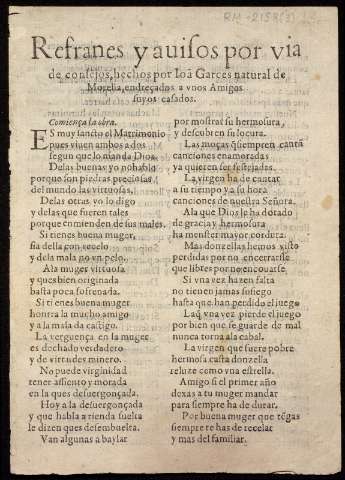 RM-2158(3)
Refranes y auisos por via
de consejos, hechos por Ioã Garces natural de
Morella, endreçados a vnos Amigos
suyos casados.
Comiença la obra.
ES muy sancto el Matrimonio
pues viuen ambos a dos
segun que lo manda Dios.
Delas buenas yo no hablo
porque son piedras preciosas
del mundo las virtuosas.
Delas otras yo lo digo
y delas que fueren tales
porque emienden de sus males.
Si tienes buena muger,
fia della con recelo
y dela mala no vn pelo.
Ala muger virtuosa
y ques bien originada
basta poca sofrenada.
Si tienes buena muger
hontra la mucho amigo
y a la mala da castigo.
La verguença en la muger
es dechado verdadero
y de virtudes minero.
No puede virginidad
tener assiento y morada
en la ques desuergonçada.
Hoy a la desuergonçada
y que habla a rienda suelta
le dizen ques desembuelta.
Van algunas a baylar
por mostrar su hermosura,
y descubren su locura.
Las moças q̃ siempren cantã
canciones enamoradas
ya quieren ser festejadas.
La virgen ha de cantar
a su tiempo y a su hora
canciones de nuestra Señora.
Ala que Dios le ha dotado
de gracia y hermosura
ha menster mayor cordura.
Mas donzellas hemos visto
perdidas por no encerrarse
que libres por no encouarse.
Si vna vez hazen falta
no tienen jamas sosiego
hasta que han perdido el juego
La q̃ vna vez pierde el juego
por bien que se guarde de mal
nunca torna ala cabal.
La virgen que fuere pobre
hermosa casta donzella
reluze como vna estrella.
Amigo si el primer año
dexas a tu muger mandar
para siempre ha de durar.
Por buena muger que tẽgas
siempre te has de recelar
y mas del familiar.